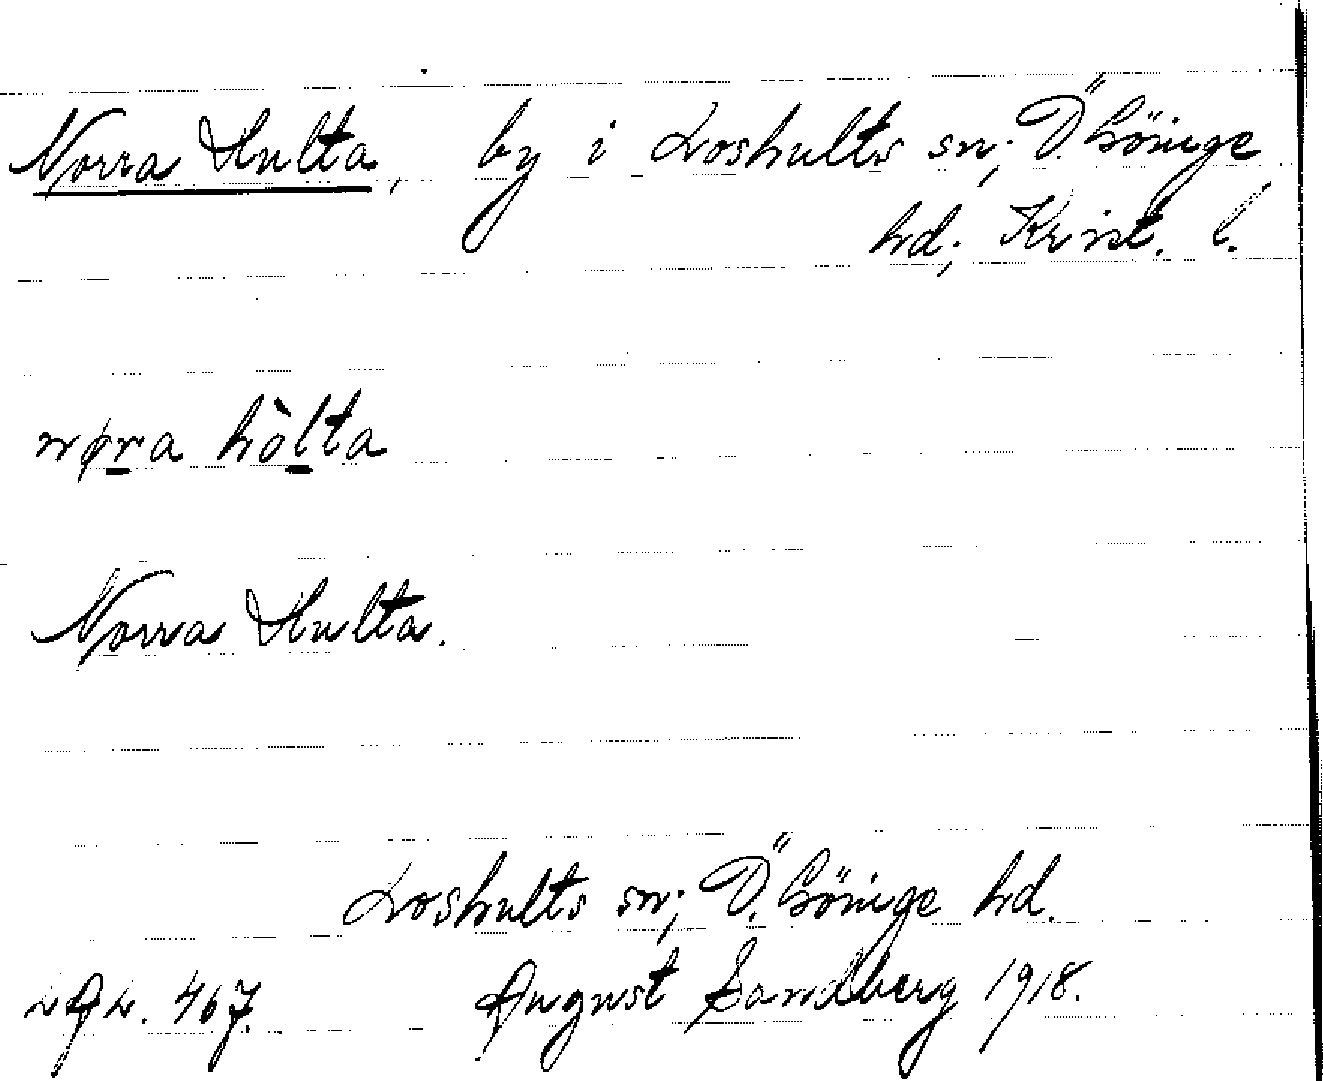 Norra Hulta, by i Loshults sn; Ö. Göinge
hd; Krist. l.
nøra hòlta
Norra Hulta.
Loshults sn; Ö. Göinge hd.
467. August Sandberg 1918.